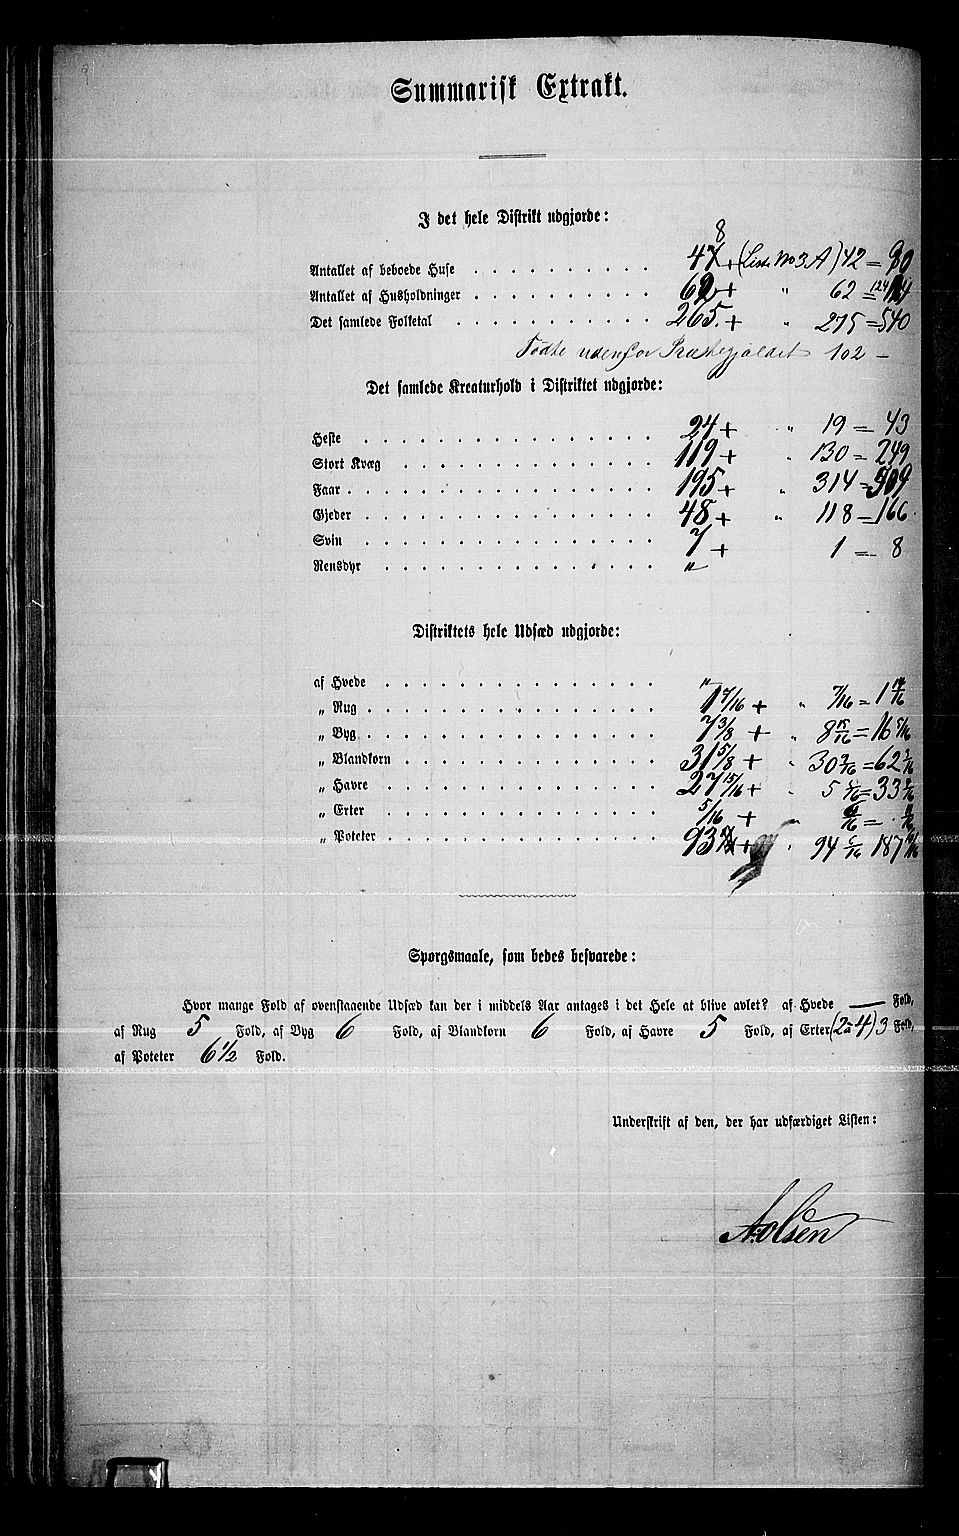 Summarisk Extrakt.
I det hele Distrikt udgjorde:
8
Antallet af beboede Huse 47 + (Liste No 3 A) 42 = 90
Antallet af Husholdninger 62 + " 62 = 124
Det samlede Folketal 265. + " 275 = 540
Fødte udenfor Præstegjældet 102 –
Det samlede Kreaturhold i Distriktet udgjorde:
Heste 24 + " 19 = 43
Stort Kvæg 119 + " 130 = 249
Faar 195 + " 314 = 509
Gjeder 48 + " 118 = 166
Svin 7 + 1 = 8
Rensdyr "
Distriktets hele Udsæd udgjorde:
af Hvede "
„ Rug 1 7/16 + " 7/16 = 1 14/16
„ Byg 7 3/8 + " 8 15/16 = 16 5/16
„ Blandkorn 31 5/8 + " 30 9/16 = 62 3/16
„ Havre 27 15/16 + " 5 = 33
„ Erter 5/16 + =
„ Poteter 93 + " 94 187
Spørgsmaale, som bedes besvarede:
Hvor mange Fold af ovenstaaende Udsæd kan der i middels Aar antages i det Hele at blive avlet? af Hvede — Fold,
af Rug 5 Fold, af Byg 6 Fold, af Blandkorn 6 Fold, af Havre 5 Fold, af Erter (2 à 4) 3 Fold,
af Poteter 6 1/2 Fold.
Underskrift af den, der har udfærdiget Listen:
A. Olsen